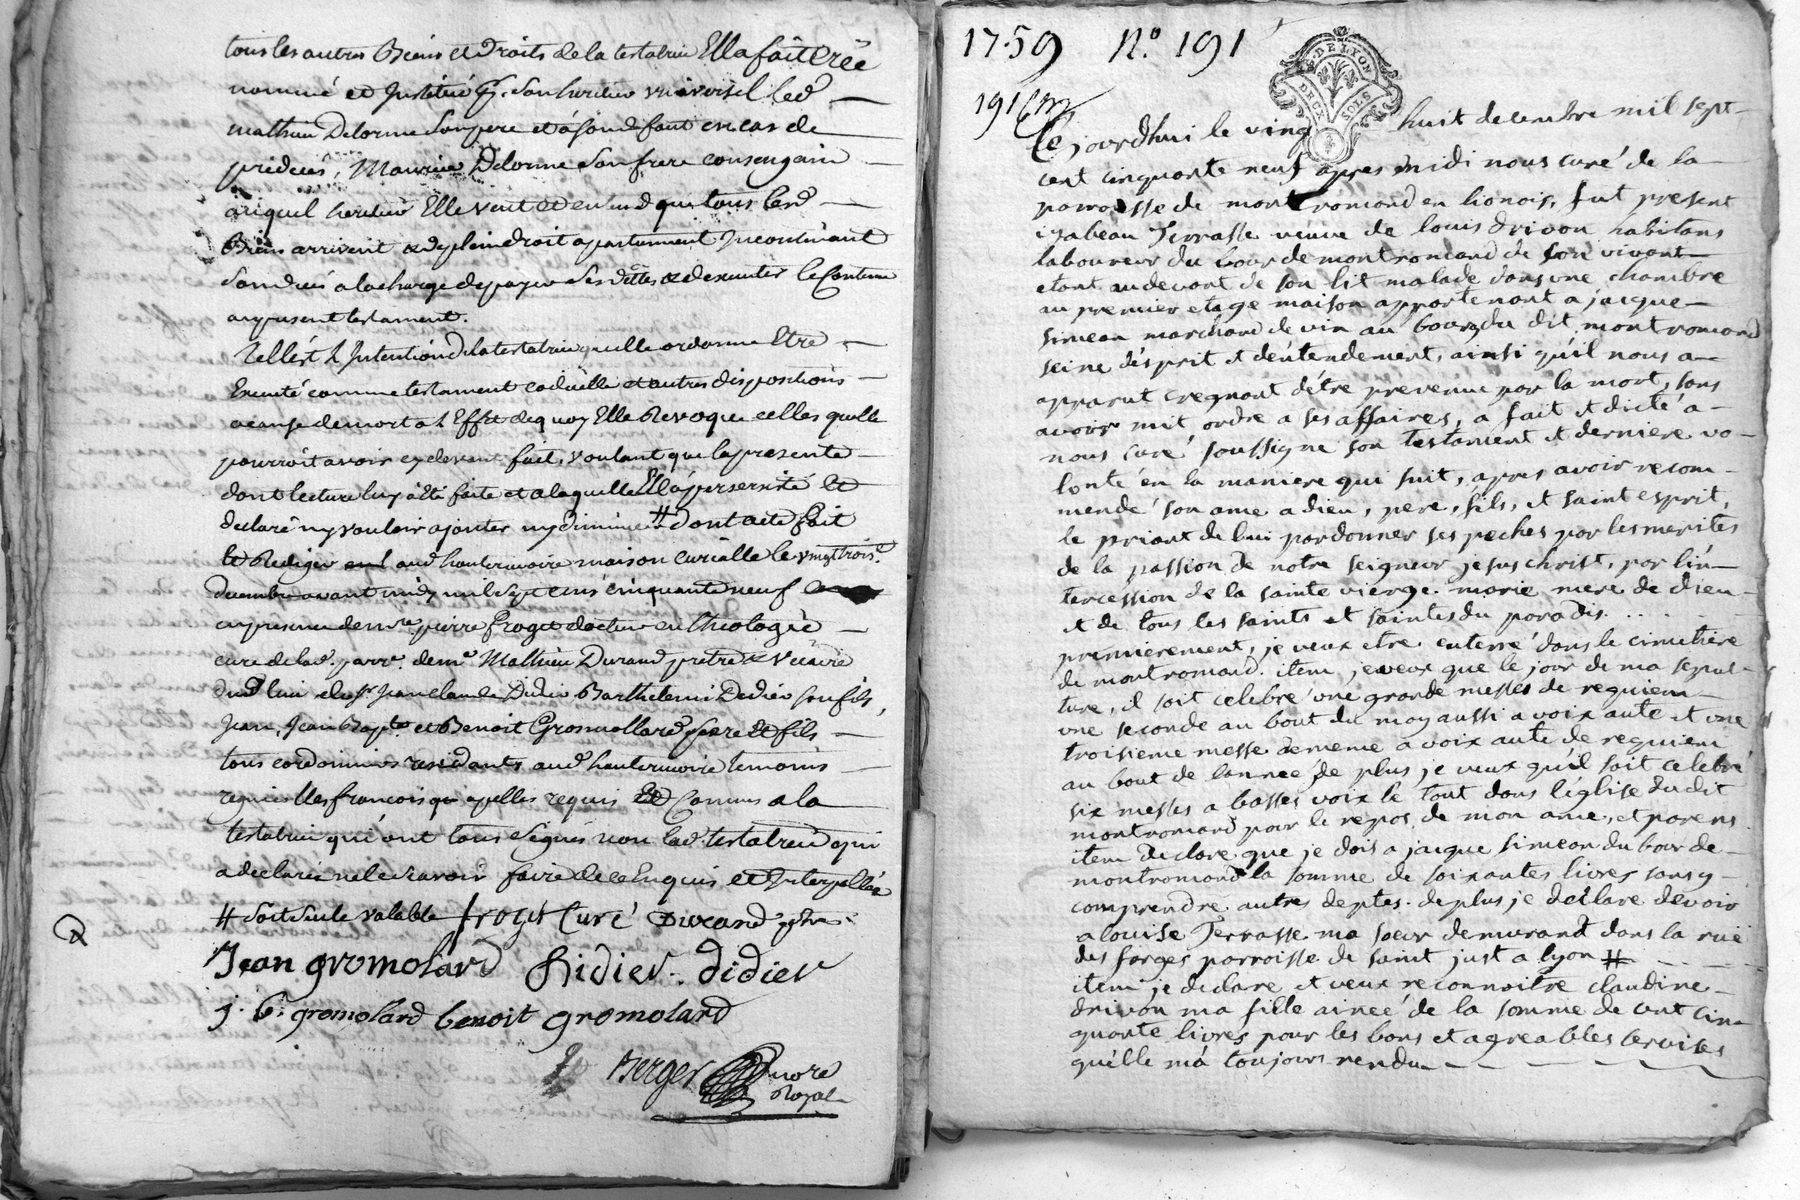 tous les autres Biens et droits de la testatrice Ella fait Crée
nommé et Institué pr. son heritier universel led
mathieu Delorme son pere et à son defaut en cas de
predeces, Maurice Delorme son frere consenguin
auquel heritier Elle veut et entend que tous lesd
Biens arrivent et de plein droit apartiennent Incontinant
son deces a la charge de payer ses dettes et dexecuter le Contenu
au present testament.
Telle est L Intention de la testatrice quelle ordonne Etre
Executé comme testament codicille et autres dispositions
a cause de mort a L Effet de quoy Elle Revoque celles quelle
pourroit avoir cy devant fait, voulant que la presente
dont lecture luy a êté faite et a laquelle Ella persersisté et
declaré ny vouloir ajouter ny diminuer # dont acte fait
et Redigé aud hauterivoire maison curialle le vingt trois.e
decembre avant midy mil sept cens cinquante neuf
en presence de mre. pierre froget docteur en theologie
curé de lad. parr. de me Mathieu Durand pretre Vicaire
dud lieu de sr Jean claude Didier Barthelemi Dedier son fils,
Jean, Jean Bapte et Benoit Gromollard pere et fils
tous cordonniers residants aud hauterivoire temoins
requis et Connus a la
testatrice qui ont tous signés non lad. testatrice qui
a declarée ne le scavoir faire de ce Enquis et Interpellée
# soit seule valable froget Curé Durand ptre
Jean gromolard didier. didier
j. b. gromolard benoit gromolard
Berger nore
Royal
1759 N.º 191
191
DE LYON
DEUX SOLS
Cejourdhui le ving huit decembre mil sept
cent cinquante neuf apres midi nous curé de la
parroisse de montromand en lionois, fut present
izabeau Terrasse veuve de louis drivon habitans
laboureur du bour de montromand de son vivant
etant au devant de son lit malade dans une chambre
au premier etage maison appartenant a jacque
simeon marchand de vin au bourg du dit montromand
seine désprit et déntendement, ainsi quil nous a
apparut cregnant détre prevenue par la mort, sans
avoir mit ordre a ses affaires, a fait et dicté a
nous curé soussigné son testament et derniere vo-
lonté en la maniere qui suit, apres avoir recom-
mendé son ame a dieu, pere, fils, et saint esprit,
le priant de lui pardonner ses peches par les merites
de la passion de notre seigneur jesus christ, par lin-
tercession de la sainte vierge marie mere de dieu
et de tous les saints et saintes du paradis. . . .
premierement, je veux etre enterré dans le cimetiere
de montromand. item, je veux que le jour de ma sepul-
ture, il soit celebré une grande messes de requiem
une seconde au bout du moy aussi a voix aute et une
troisieme messe de meme a voix aute de requiem
au bout de lannée, de plus je veux quil soit celebré
six messes a basses voix le tout dans léglise du dit
montromand pour le repos de mon ame, et parens
item declare que je dois a jacque simeon du bour de
montromand la somme de soixantes livres sans y
comprendre autres deptes. de plus je déclare devoir
a louise Terrasse ma soeur demurand dans la ruë
des farges parroisse de saint just a lyon #
item je declare et veux reconnoitre claudine
drivon ma fille aineé de la somme de cent cin-
quante livres pour les bons et agreables servises
quélle má toujours rendu